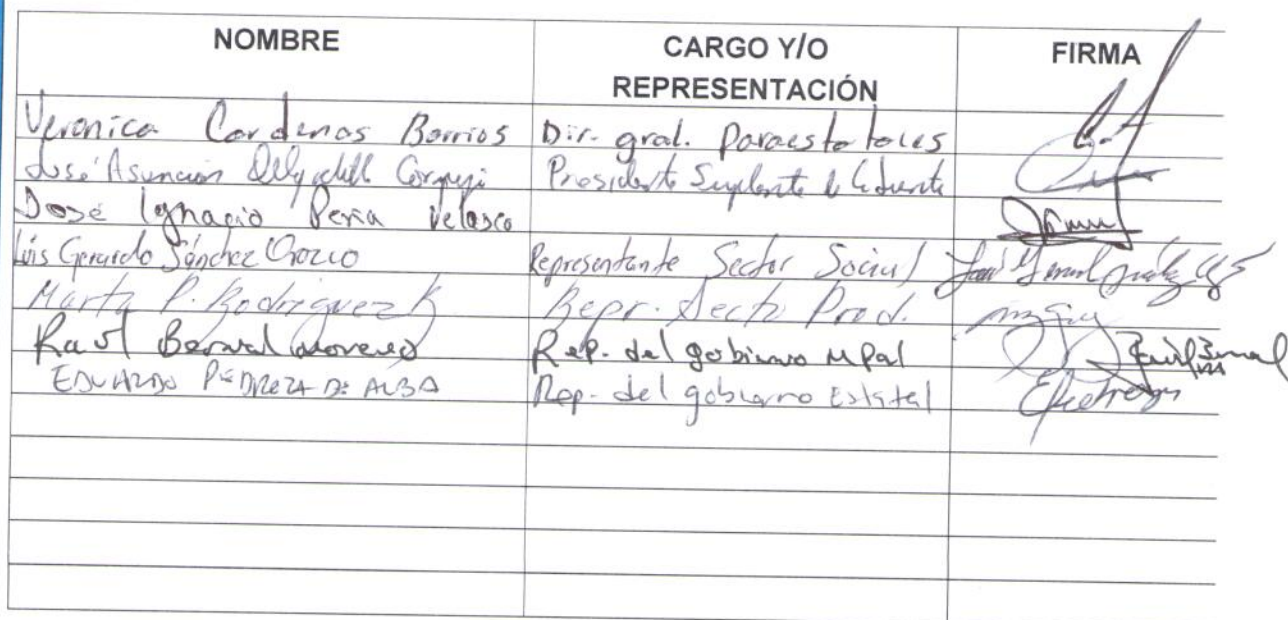 NOMBRE CARGO Y/O REPRESENTACIÓN FIRMA
Veronica Cardenas Barrios Dir. gral. Paraestatales
José Asunción Presidente Suplente
José Ignacio Peña Velasco
Luis Gerardo Sánchez Orozco Representante Sector Social
Martha P. Rodriguez R Repr. Secto Prod.
Raúl Bernal Moreno Rep. del gobierno Mpal
EDUARDO PEDROZA DE ALBA Rep. del gobierno Estatal